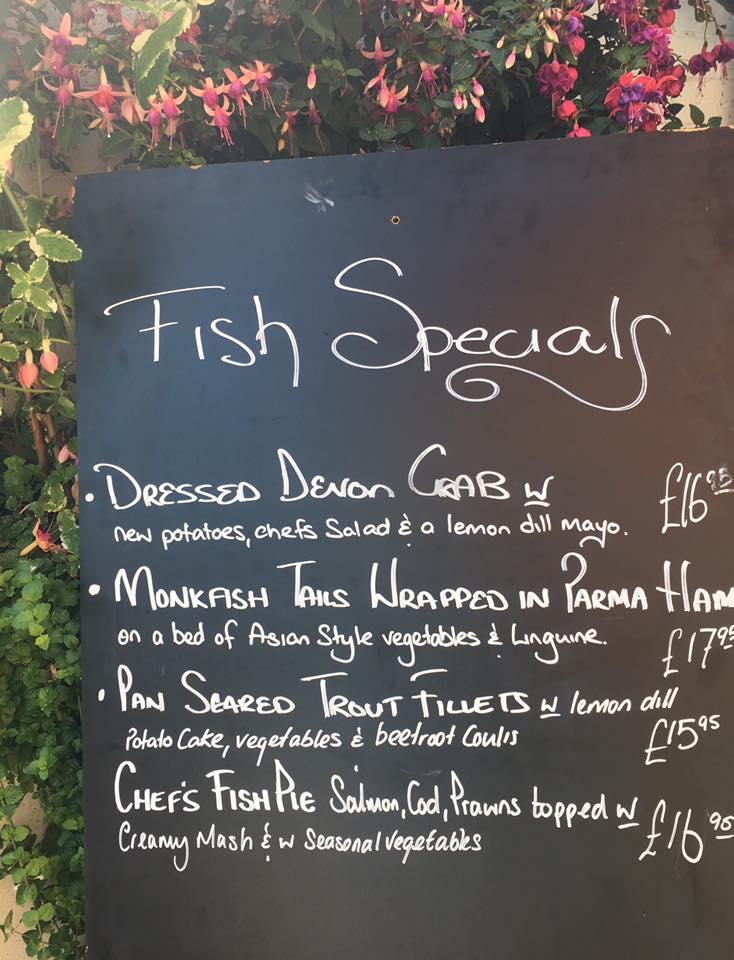 Fish Specials
• DRESSED DEVON CRAB w £16.95
new potatoes, chefs Salad & a lemon dill mayo.
• MONKFISH TAILS WRAPPED IN PARMA HAM
on a bed of Asian Style vegetables & Linguine. £17.95
• PAN SEARED TROUT FILLETS w lemon dill
Potato Cake, vegetables & beetroot Coulis £15.95
CHEF'S FISH PIE Salmon, Cod, Prawns topped w £16.95
Creamy Mash & w Seasonal vegetables